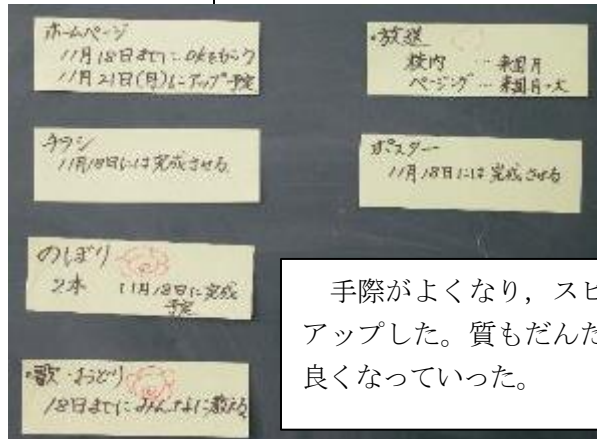 ホームページ
11月18日までにOKをもらう
11月21日(月)にアップ予定
・放送
校内 … 来週月
ページング … 来週月・火
チラシ
11月18日には完成させる
ポスター
11月18日には完成させる
のぼり
2本 11月18日に完成
予定
・歌・おどり
18日までにみんなに教える
手際がよくなり，スピ
アップした。質もだんだ
良くなっていった。